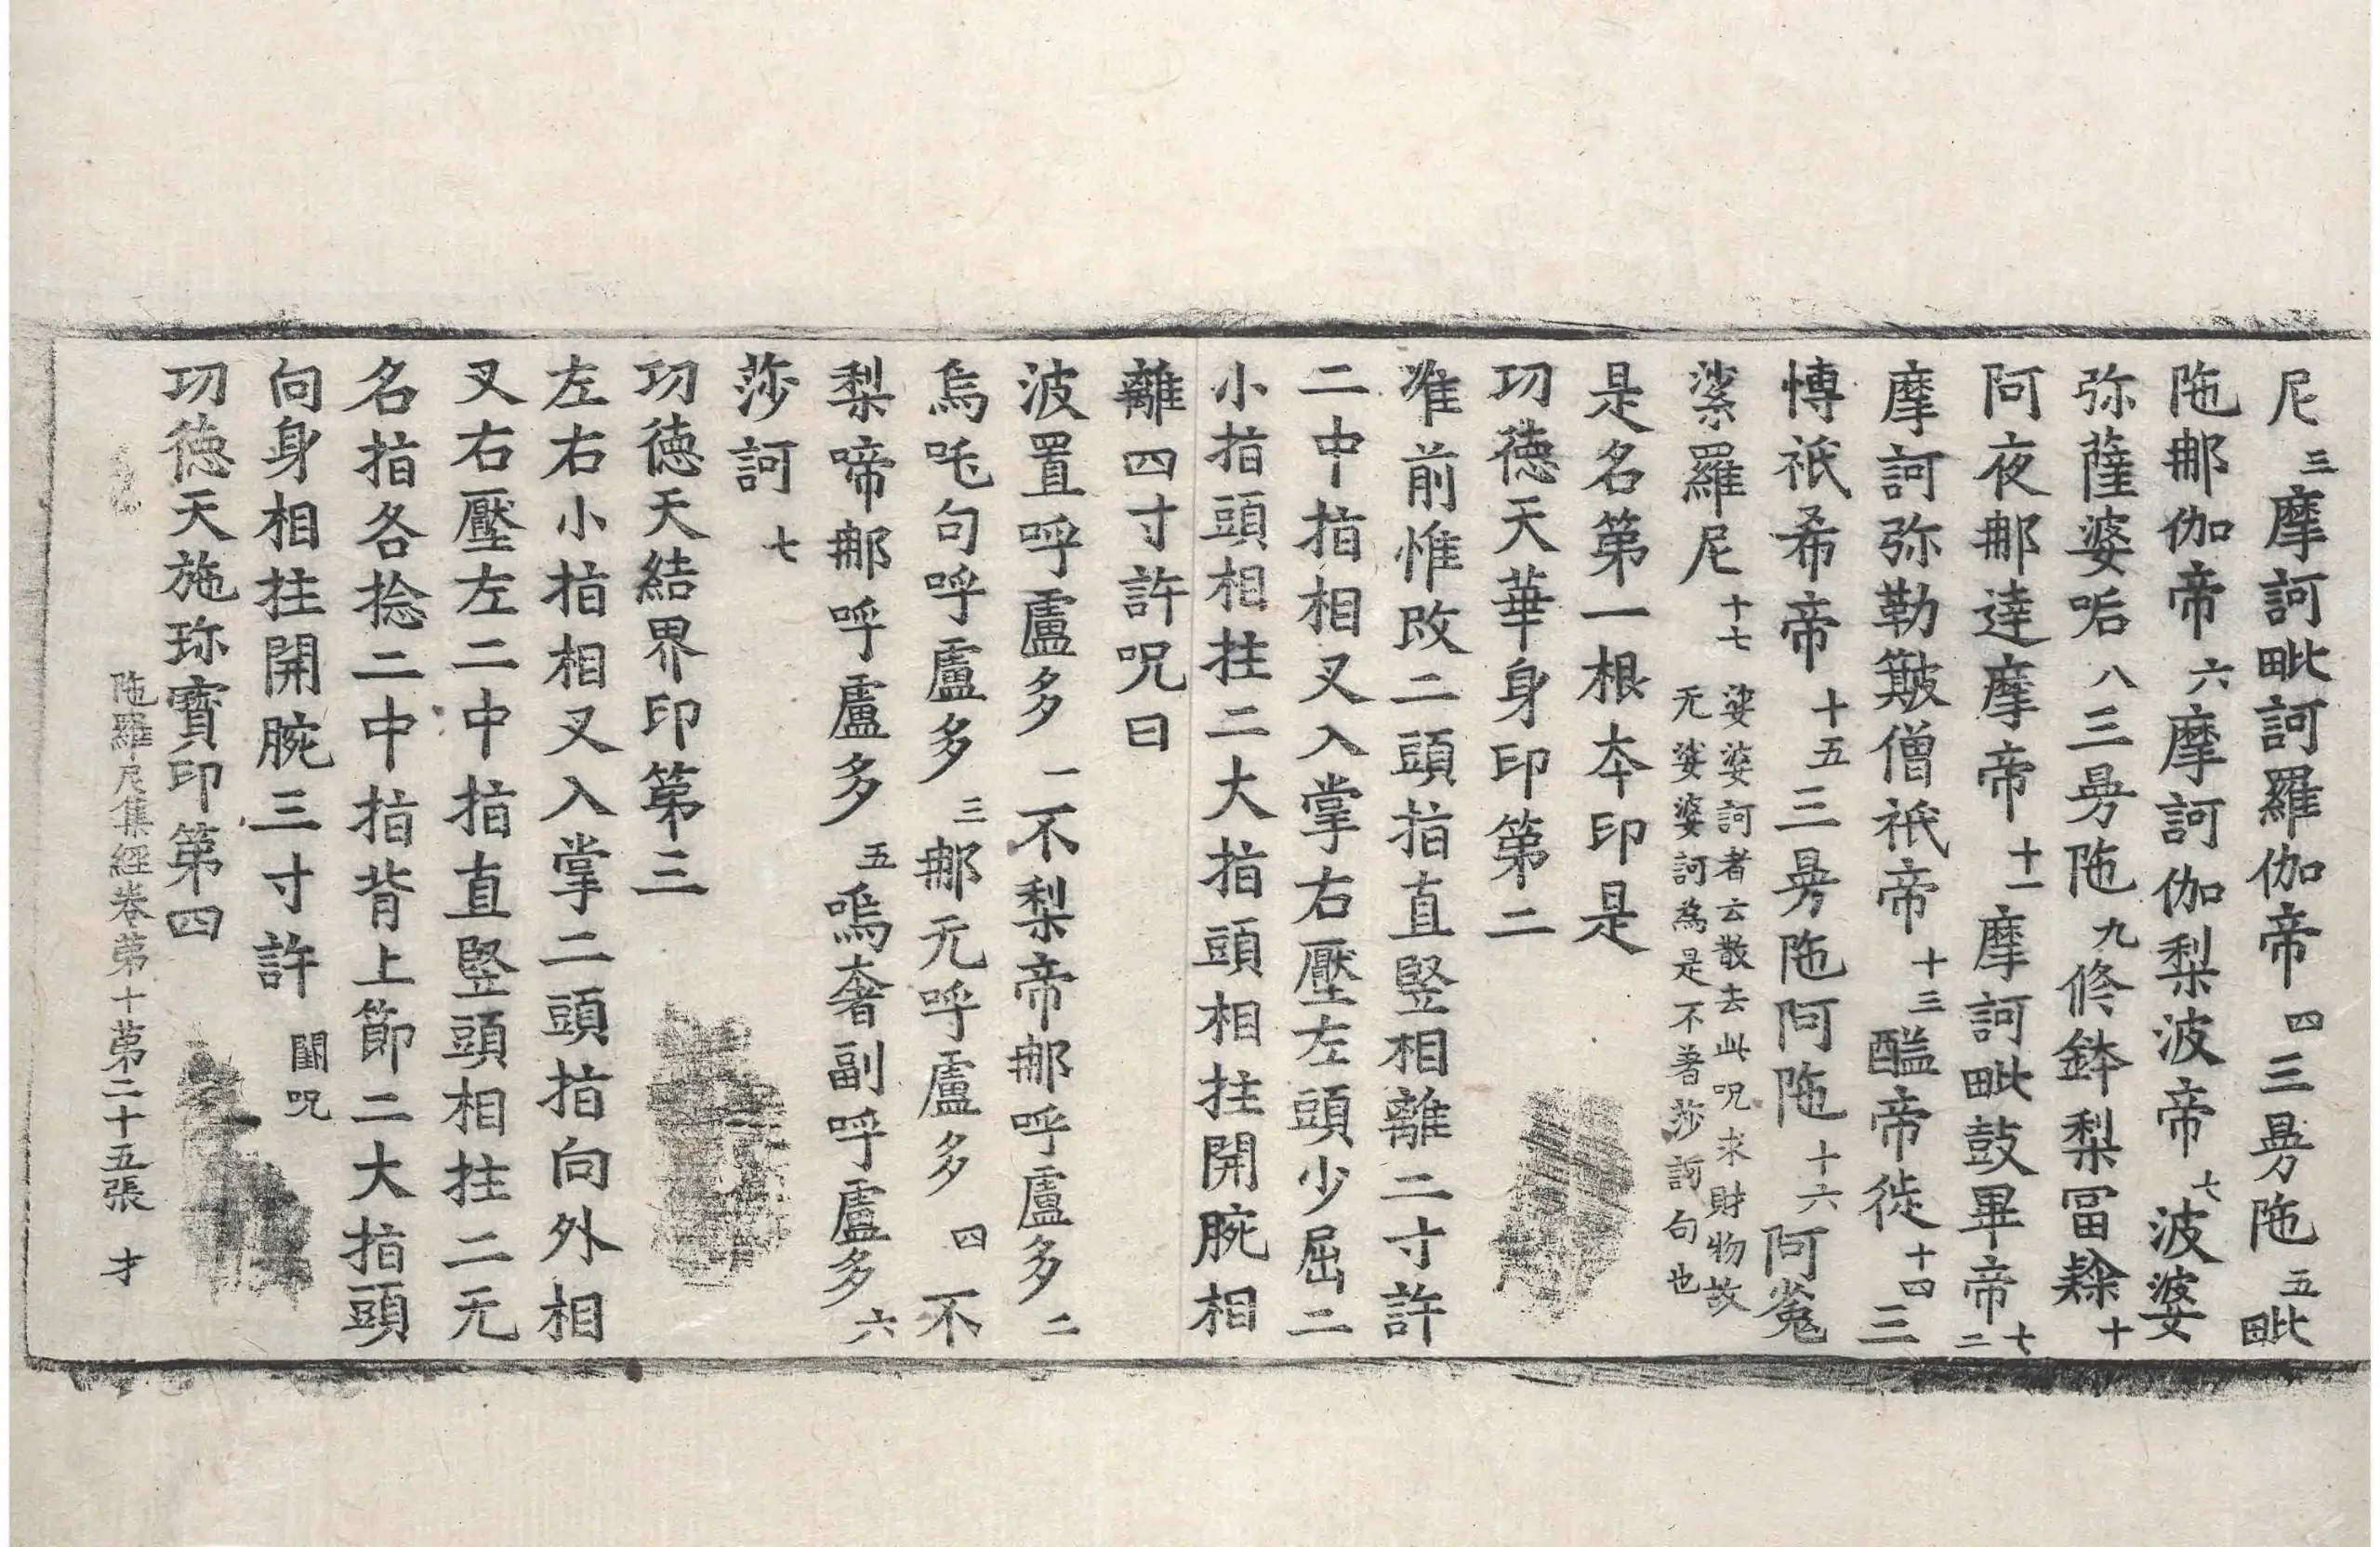 尼三摩訶毗訶羅伽帝四三曼陁五毗
陁那伽帝六摩訶伽梨波帝七波婆
弥薩婆咶八三曼陁九修鉢梨冨隸十
阿夜那達摩帝十一摩訶毗鼓畢帝十二
摩訶弥勒簸僧祇帝十三醯帝徙十四三
博祇希帝十五三曼陁阿陁十六阿㝹
娑羅尼十七娑婆訶者云散去此呪求財物故
无娑婆訶為是不著莎訶句也
是名第一根夲印是
功德天華身印第二
准前惟改二頭指直竪相離二寸許
二中指相叉入掌右壓左頭少屈二
小指頭相拄二大指頭相拄開腕相
離四寸許呪曰
波置呼盧多一不梨帝那呼盧多二
烏吒句呼盧多三那元呼盧多四不
梨啼那呼盧多五嗚奢副呼盧多六
莎訶七
功德天結界印第三
左右小指相叉入掌二頭指向外相
叉右壓左二中指直竪頭相拄二无
名指各捻二中指背上節二大指頭
向身相拄開腕三寸許闍呪
功德天施珎寶印第四
陁羅尼集經卷第十第二十五張 才